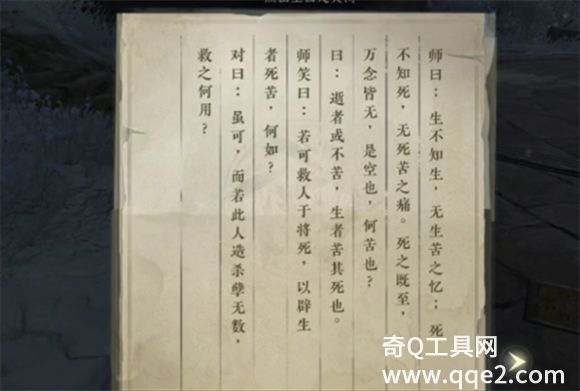 师曰：生不知生，无生苦之忆；死
不知死，无死苦之痛。死之既至，
万念皆无，是空也，何苦也？
曰：逝者或不苦，生者苦其死也。
师笑曰：若可救人于将死，以辟生
者死苦，何如？
对曰：虽可，而若此人造杀孽无数，
救之何用？
奇Q工具网
www.qqe2.com